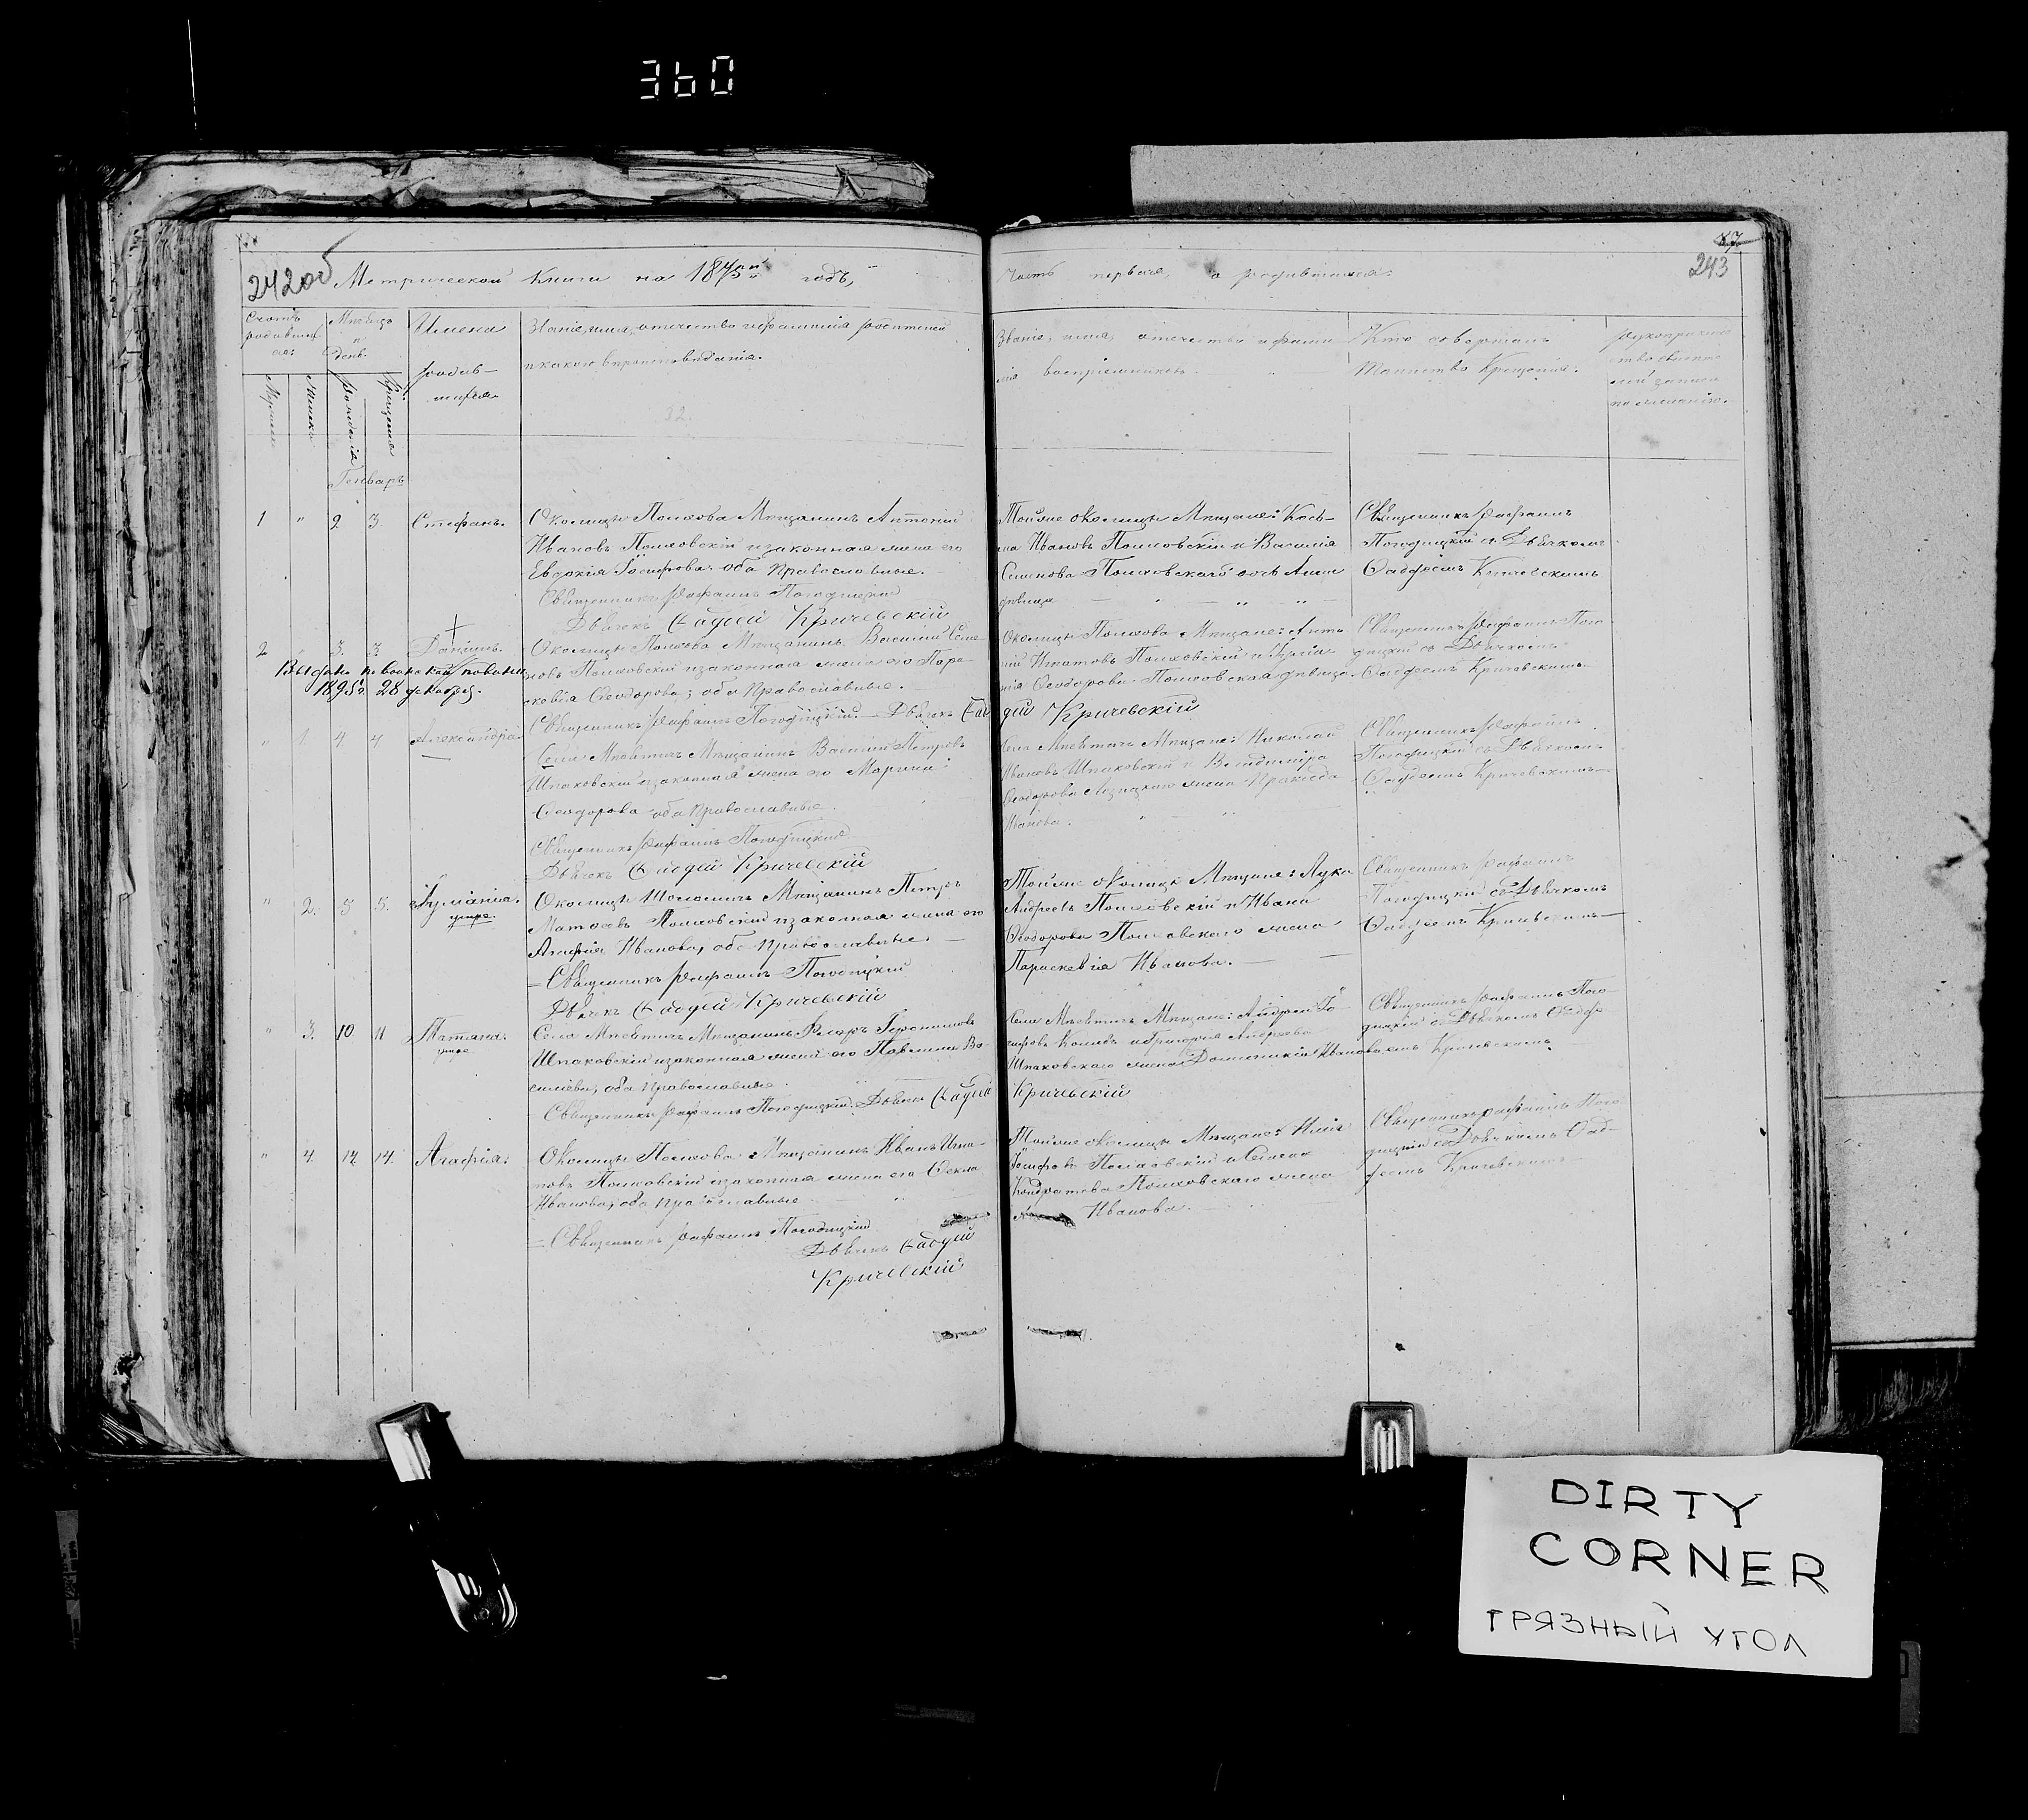 360
242об Метрической Книги на 1845й годъ,
Часть первая, о родившихся.
87
243
Счетъ родившихся.
Мѣсяцъ и день.
Имена родившихся.
Званіе, имя, отечество и фамилія родителей
и какого вѣроисповѣданія.
Званіе, имя, отечество и фамилія воспріемниковъ.
Кто совершалъ
Таинство Крещенія.
Рукоприкладство свидѣтелей записи по желанію.
Мужеска
Женска
Рожденія
Крещенія
32.
Генварь
1 " 2 3. Стефанъ.
Околицы Полхова Мѣщанинъ Антоній
Ивановъ Полховскій и законная жена его
Евдокія Іосифова, оба Православные.
Священникъ Рафаилъ Погодицкій
Дьячекъ Фаддей Кричевскій
Тойже околицы Мѣщане: Кось-
ма Ивановъ Полховскій и Василія
Семенова Полховскаго дочь
дѣвица
Священникъ Рафаилъ
Погодицкій съ Дьячкомъ
Фаддеемъ Кричевскимъ
2 " 3. 3 Даніилъ.
Выдано по воинской повинн.
1895 г. 28 декабря.
Околицы Полхова Мѣщанинъ Василій Семе-
новъ Полховскій и законная жена его Пара-
скевія Феодорова; оба Православные.
Священникъ Рафаилъ Погодицкій. Дьячекъ Фаддей Кричевскій
Околицы Полхова Мѣщане: Анто-
ній Игнатовъ Полховскій и
Феодорова Полховская дѣвица.
Священникъ Рафаилъ Пого-
дицкій съ Дьячкомъ
Фаддеемъ Кричевскимъ
" 1 4. 4 Александра
Села Мѣстичъ Мѣщанинъ Василій Петровъ
Шпаковскій и законная жена его Марина
Феодорова оба Православные.
Священникъ Рафаилъ Погодицкій
Дьячекъ Фаддей Кричевскій
Мѣщане: Николай
Ивановъ Шпаковскій и
Феодорова жена
Иванова.
Священникъ Рафаилъ
Погодицкій съ Дьячкомъ
Фаддеемъ Кричевскимъ
" 2. 5 5. Іуліанія.
умре.
Околицы Мѣщанинъ Петръ
Матѳеевъ Полховскій и законная жена его
Агафія Иванова, оба Православные.
Священникъ Рафаилъ Погодицкій
Дьячекъ Фаддей Кричевскій
Тойже околицы Мѣщане: Лука
Андреевъ Полховскій и Ивана
Феодорова Полховскаго жена
Параскевія Иванова.
Священникъ Рафаилъ
Погодицкій съ Дьячкомъ
Фаддеемъ Кричевскимъ
" 3. 10 11 Татіана.
умре
Села Мѣщанинъ
Шпаковскій и законная жена его Павлина Ва-
силіева, оба Православные.
Священникъ Рафаилъ Погодицкій. Дьячекъ Фаддей Кричевскій
Мѣщане: Андрей Іо-
сифовъ и Григорія Андреева
Шпаковскаго жена Домникія Иванова
Священникъ Рафаилъ Пого-
дицкій съ Дьячкомъ Фадде-
емъ Кричевскимъ
" 4. 14. 14. Агафія.
Околицы Полхова Мѣщанинъ Иванъ Игна-
товъ Полховскій и законная жена его Фекла
Иванова, оба Православные
Священникъ Рафаилъ Погодицкій
Дьячекъ Фаддей
Кричевскій
Тойже околицы Мѣщане: Илія
Іосифовъ Полховскій и
Кондратова Полховскаго жена
Иванова.
Священникъ Рафаилъ Пого-
дицкій съ Дьячкомъ Фад-
деемъ Кричевскимъ
DIRTY
CORNER
ГРЯЗНЫЙ УГОЛ